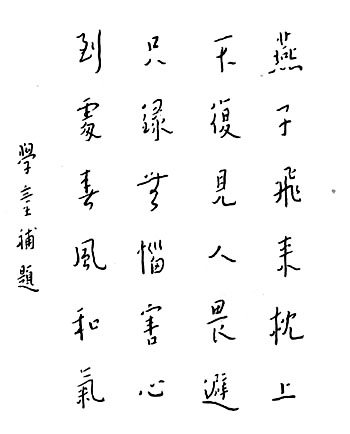 燕子飛來枕上
不復見人畏避
只緣無惱害心
到處春風和氣
學童補題